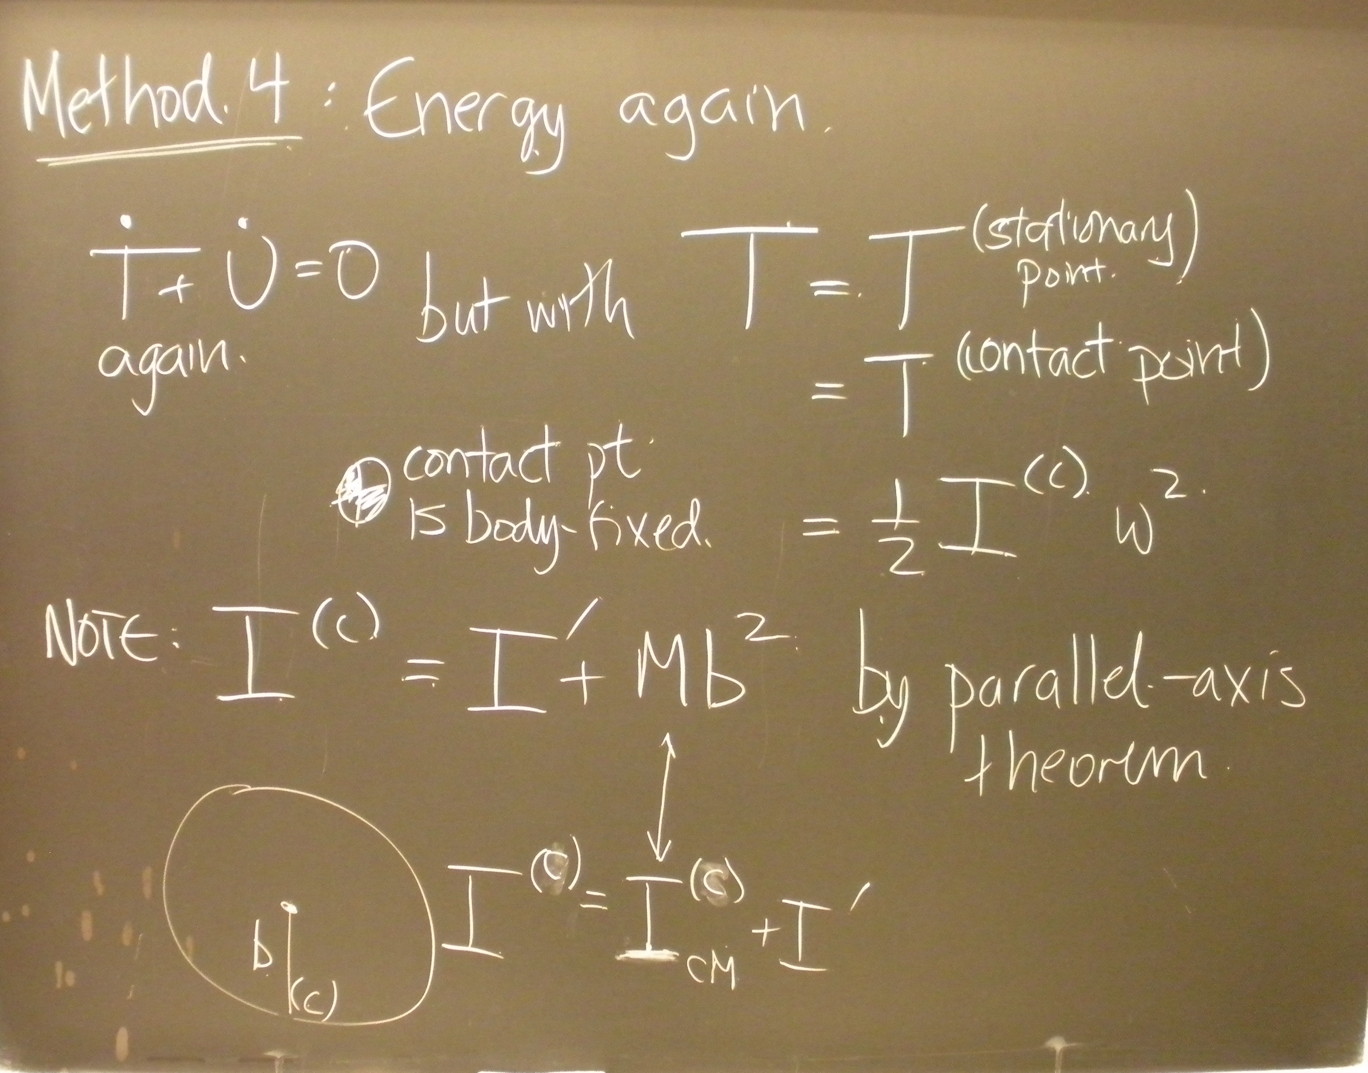 Method 4: Energy again.
Ṫ + U̇ = 0 but with T = T^(stationary point.)
again.
= T^(contact point)
contact pt.
is body-fixed.
= 1/2 I^(c) ω².
NOTE: I^(c) = I′ + Mb² by parallel-axis
theorem.
I^(c) = I_CM^(c) + I′
b
(c)